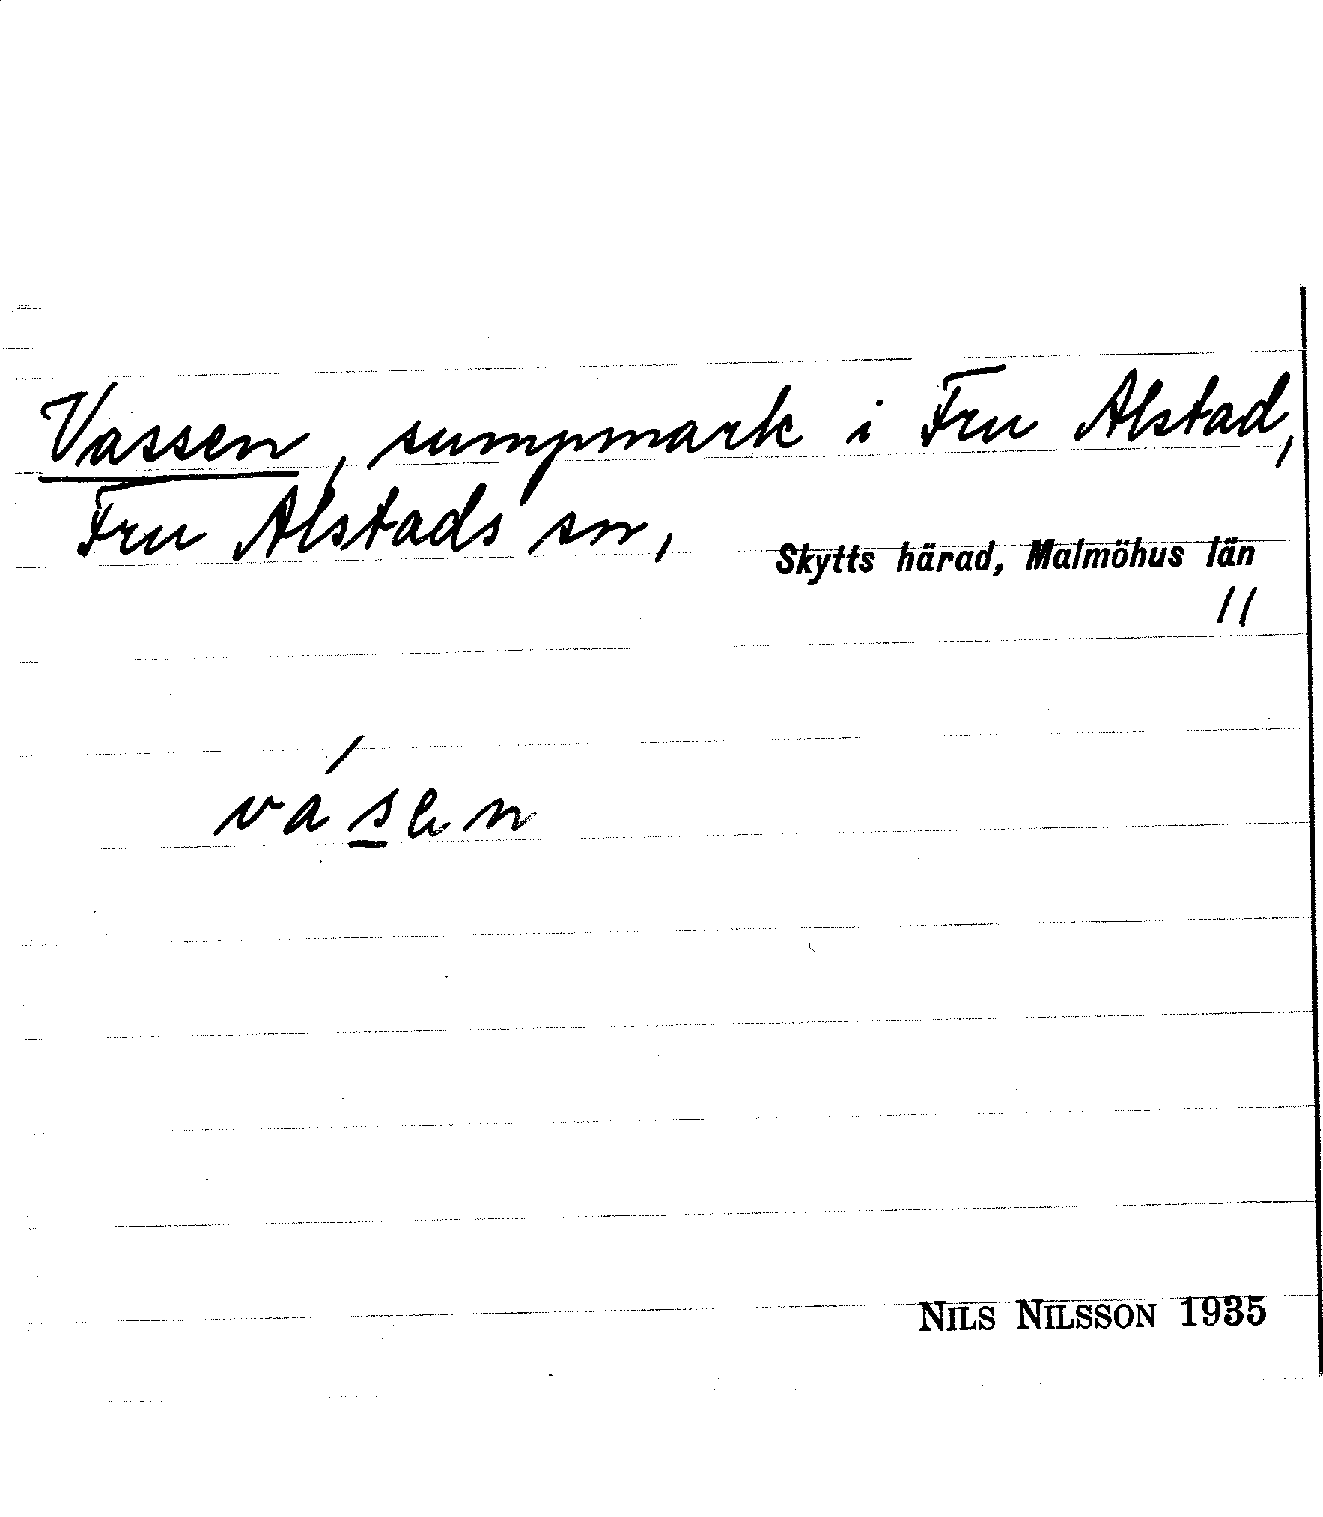 Vassen, sumpmark i Fru Alstad,
Fru Alstads sn, Skytts härad, Malmöhus län
11
vásen
NILS NILSSON 1935